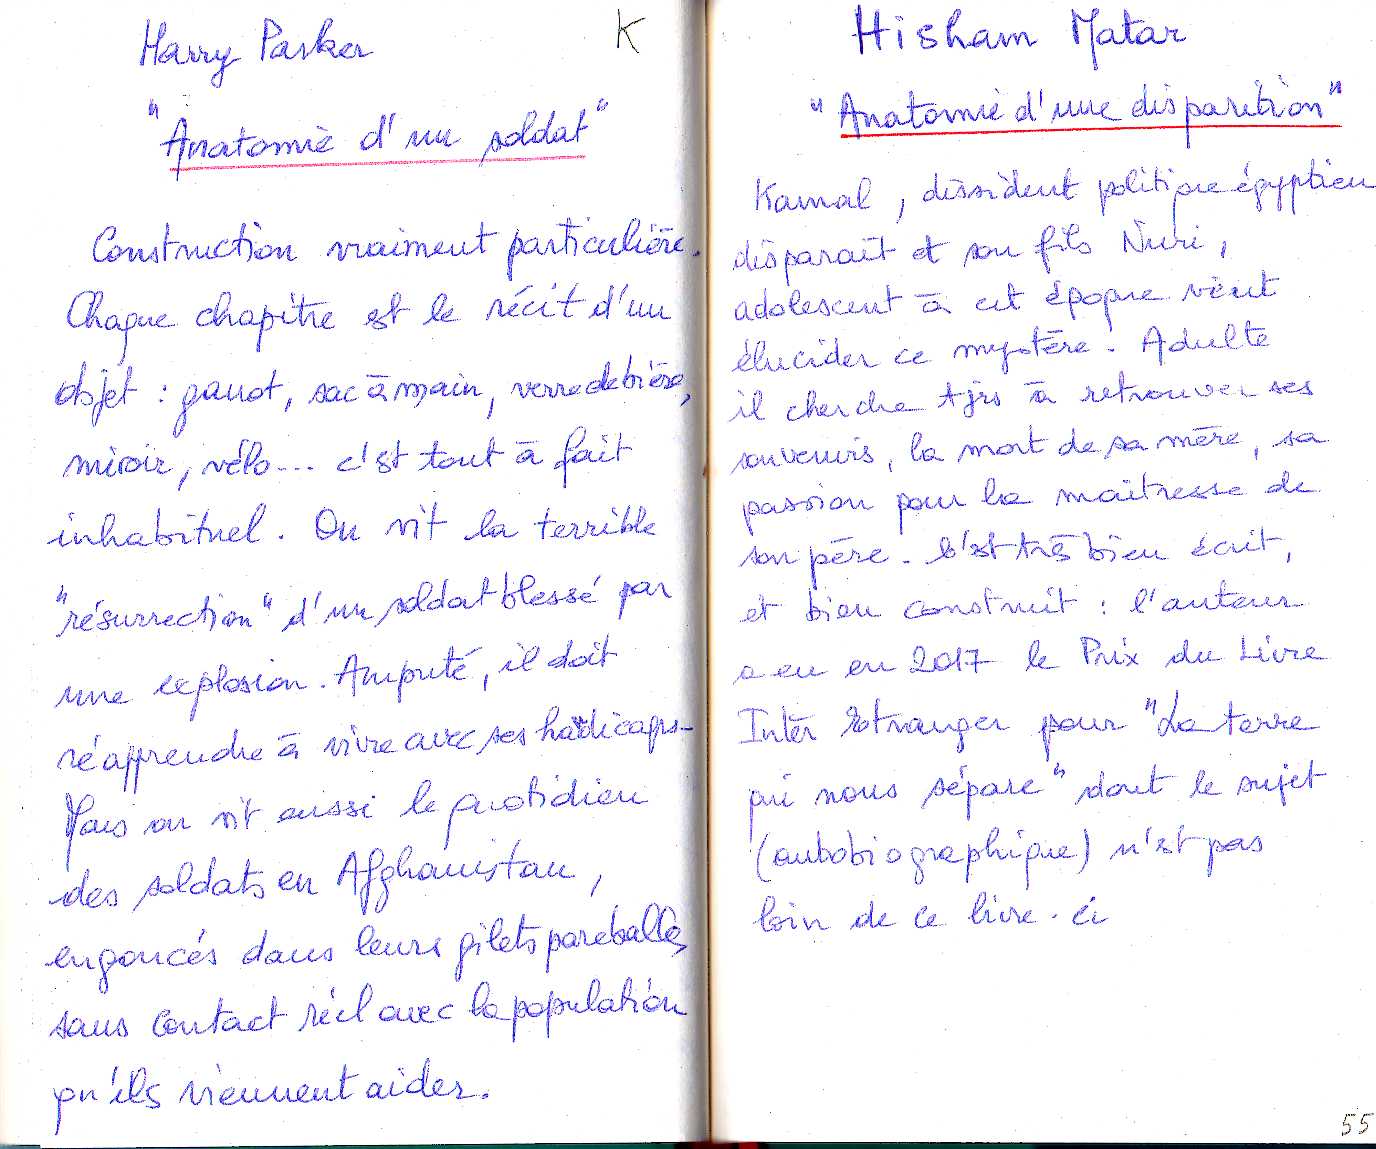 Harry Parker
K
"Anatomie d'un soldat"
Construction vraiment particulière.
Chaque chapitre est le récit d'un
objet : garrot, sac à main, verre de bière,
miroir, vélo... c'est tout à fait
inhabituel. On vit la terrible
"résurrection" d'un soldat blessé par
une explosion. Amputé, il doit
réapprendre à vivre avec ses handicaps.
Mais on vit aussi le quotidien
des soldats en Afghanistan,
engoncés dans leurs gilets pareballes,
sans contact réel avec la population
qu'ils viennent aider.
Hisham Matar
"Anatomie d'une disparition"
Kamal, dissident politique égyptien
disparaît et son fils Nuri,
adolescent à cet époque veut
élucider ce mystère. Adulte
il cherche tjrs à retrouver ses
souvenirs, la mort de sa mère, sa
passion pour la maîtresse de
son père. C'est très bien écrit,
et bien construit : l'auteur
a eu en 2017 le Prix du Livre
Inter Etranger pour "La terre
qui nous sépare" dont le sujet
(autobiographique) n'est pas
loin de ce livre-ci
55